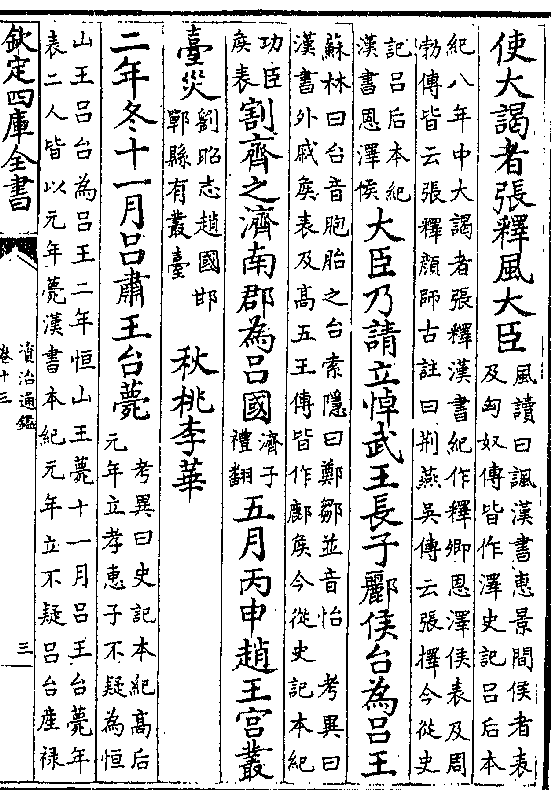 使大謁者張釋風大臣風讀曰諷漢書惠景間侯者表
及匈奴傳皆作澤史記吕后本
紀八年中大謁者張釋漢書紀作釋卿恩澤侯表及周
勃傳皆云張釋顔師古註曰荆燕吳傳云張擇今從史
記吕后本紀
漢書恩澤侯大臣乃請立悼武王長子酈侯台為吕王
蘇林曰台音胞胎之台索隱曰鄭鄒並音怡 考異曰
漢書外戚矦表及髙五王傳皆作鄜矦今從史記本紀
功臣
矦表割齊之濟南郡為吕國濟子
禮翻五月丙申趙王宫叢
臺災劉昭志趙國邯
鄲縣有叢臺 秋桃李華
二年冬十一月吕肅王台薨考異曰史記本紀髙后
元年立孝惠子不疑為恒
山王吕台為吕王二年恒山王薨十一月吕王台薨年
表二人皆以元年薨漢書本紀元年立不疑吕台産禄
欽定四庫全書
資治通鑑
卷十三
三